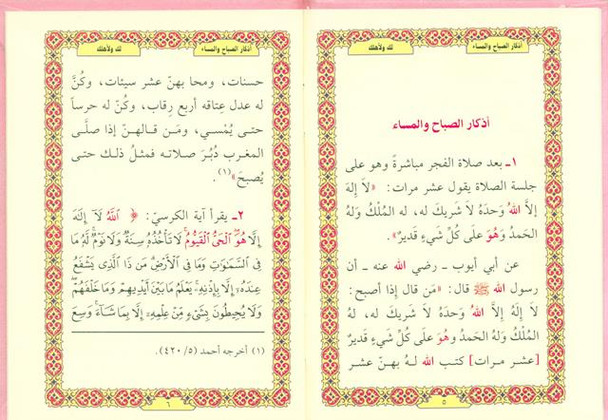 أذكار الصباح والمساء
لك ولأهلك
أذكار الصباح والمساء
١ـ بعد صلاة الفجر مباشرةً وهو على
جلسة الصلاة يقول عشر مرات: «لَا إِلٰهَ
إلاَّ اللهُ وَحدَهُ لاَ شريكَ له، له المُلْكُ وَلهُ
الحَمدُ وَهُوَ عَلَى كُلِّ شَيءٍ قَديرٌ».
عن أبي أيوب ـ رضي الله عنه ـ أن
رسول الله ﷺ قال: «مَن قال إذا أصبح:
لاَ إِلَهَ إلاَّ اللهُ وَحدَهُ لاَ شريكَ له، لهُ
المُلكُ وَلهُ الحَمدُ وهُوَ عَلَى كُلِّ شَيءٍ قَديرٌ
[عشر مرات] كتب الله لـهُ بهنّ عشر
٥
أذكار الصباح والمساء
لك ولأهلك
حسنات، ومحا بهنّ عشر سيئات، وكُنَّ
له عدل عِتاقه أربع رِقاب، وكُنّ له حرساً
حتى يُمْسي، ومَن قالهنّ إذا صلَّى
المغرب دُبُرَ صلاته فمثلُ ذلك حتى
يُصبحَ»(١).
٢ـ يقرأ آية الكرسيّ: ﴿ اللَّهُ لَآ إِلَٰهَ
إِلَّا هُوَ الْحَيُّ الْقَيُّومُ لَا تَأْخُذُهُ سِنَةٌ وَلَا نَوْمٌ لَّهُ مَا
فِي السَّمَٰوَٰتِ وَمَا فِي الْأَرْضِ مَن ذَا الَّذِي يَشْفَعُ
عِندَهُ إِلَّا بِإِذْنِهِ يَعْلَمُ مَا بَيْنَ أَيْدِيهِمْ وَمَا خَلْفَهُمْ
وَلَا يُحِيطُونَ بِشَيْءٍ مِّنْ عِلْمِهِ إِلَّا بِمَا شَآءَ وَسِعَ
(١) أخرجه أحمد (٥/ ٤٢٠).
٦